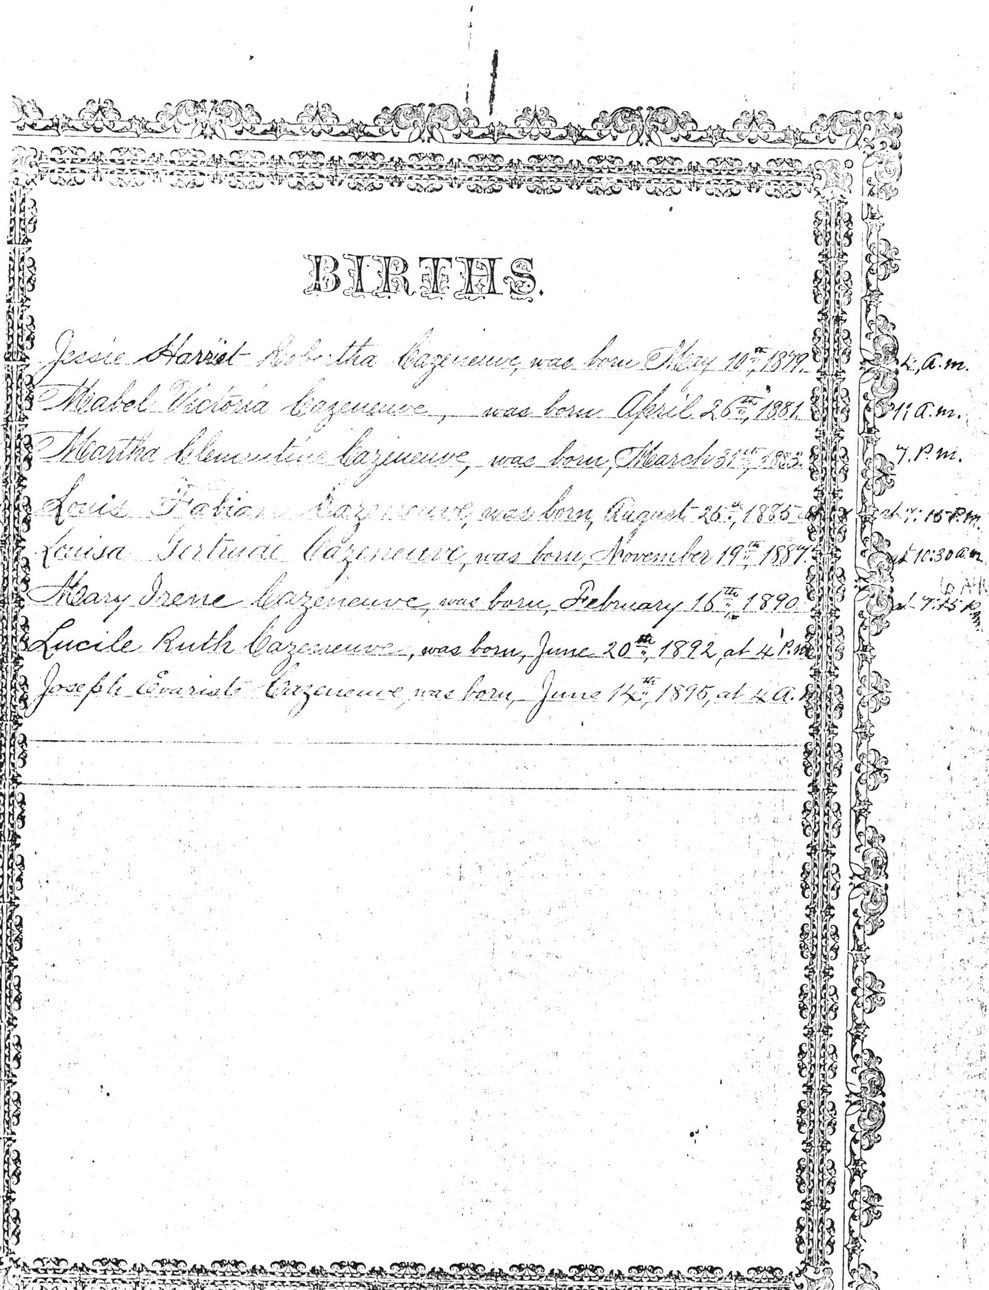 BIRTHS.
Jessie Harriet Robertha Cazeneuve, was born May 10th, 1879. 4, a.m.
Mabel Victoria Cazeneuve, was born April 26th, 1881. 11 a.m.
Martha Clementine Cazeneuve, was born, March 31st, 1883. 7. P.m.
Louis Fabian Cazeneuve, was born, August 26th, 1885 at 7:15 P.m.
Louisa Gertrude Cazeneuve, was born, November 19th, 1887. at 10:30 a.m.
Mary Irene Cazeneuve, was born, February 16th, 1890. at 7:15 P.
Lucile Ruth Cazeneuve, was born, June 20th, 1892, at 4 P.m
Joseph Evariste Cazeneuve, was born, June 14th, 1895, at 4 a.m